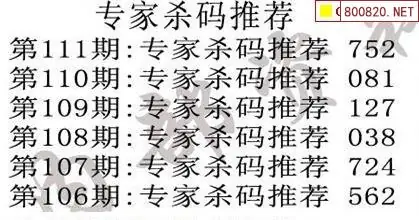 专家杀码推荐
800820.NET
第111期:专家杀码推荐 752
第110期:专家杀码推荐 081
第109期:专家杀码推荐 127
第108期:专家杀码推荐 038
第107期:专家杀码推荐 724
第106期:专家杀码推荐 562